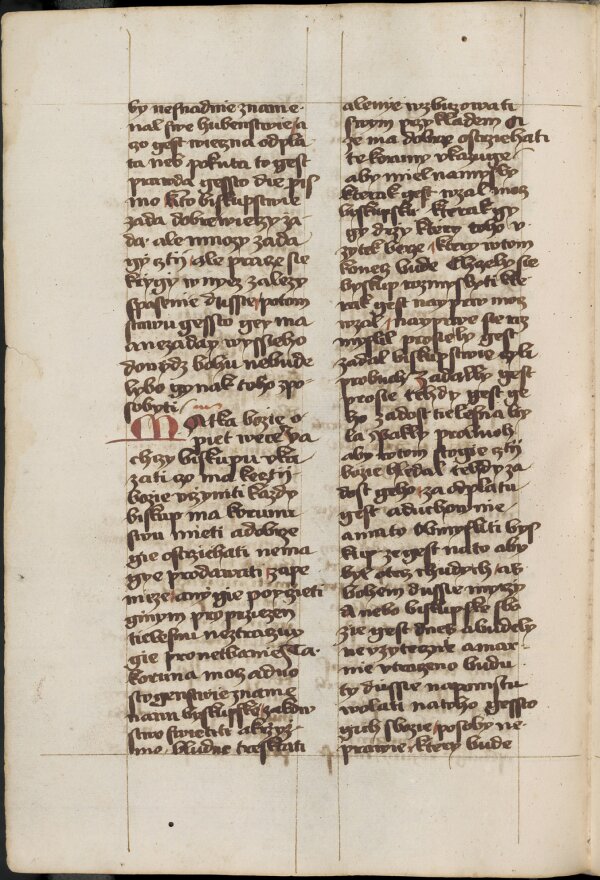 by nesnadnie zname-
nal swe hubenstwie, a
czo gest wiezna odpla
ta neb pokuta to gest
prawda gessto die pis
mo kto biskupstwie
zada dobre wieczy za-
da ale mnozy zada
gy czti, ale pracze sie
krygy w nycz zalezy
spasenie dussie, potom
stawu gessto gey ma
a nezaday wyssieho
dowydz bohu nebude
lybo gynak toho zpo-
sobyti
Matka bozie o-
piet wece ya
chczy biskupu vka-
zati czo ma ke czti
bozie vczyniti kazdy
biskup ma korunu
swu mieti a dobrze
gie ostrziehati nema
gye prodawati za pe
nieze any gie poyczieti
ginym pro prziezen
tielesnu neztraczuy
gie pro netbanie Ta-
koruna moz a duo
stogenstwie zname
nam byskupske, zakow
stwo swietiti a krziz-
mo, bludne trestati
a lemye wzbuzowati
swym przikladem Ci
ze ma dobrze ostrziehati
te koruny vkazuge
aby miel na mysly
kterak gest wzal moz
byskupsku, kterak gy
gy drzy ktery toho v-
zytek berze, ktery w tom
konecz bude Chczeli sie
byskup rozmysliti kte
rak gest nayprw moz
wzal, nayprwe sie roz
mysliti pro ktoby gest
zadal biskupstwie czyli
pro buoh Zadalby gest
pro sie tehdy gest ge-
ho zadost tielesna by
la Pakly pro buoh
aby w tom stogie czti
bozie hledal tehdy za
dost geho, za odplatu
gest a duchownie
a ma to obmysliti bys
kup ze gest na to aby
byl otecz chudych a s
bohem dussie myrzy
A nebo biskupske sbo
zie gest dnes a budely
ne vzytecznie a mar-
nie vtraczeno budu
ty dussie na pomstu
wolati na toho gessto
gich sbozie, posoby ne-
prawie, ktery bude